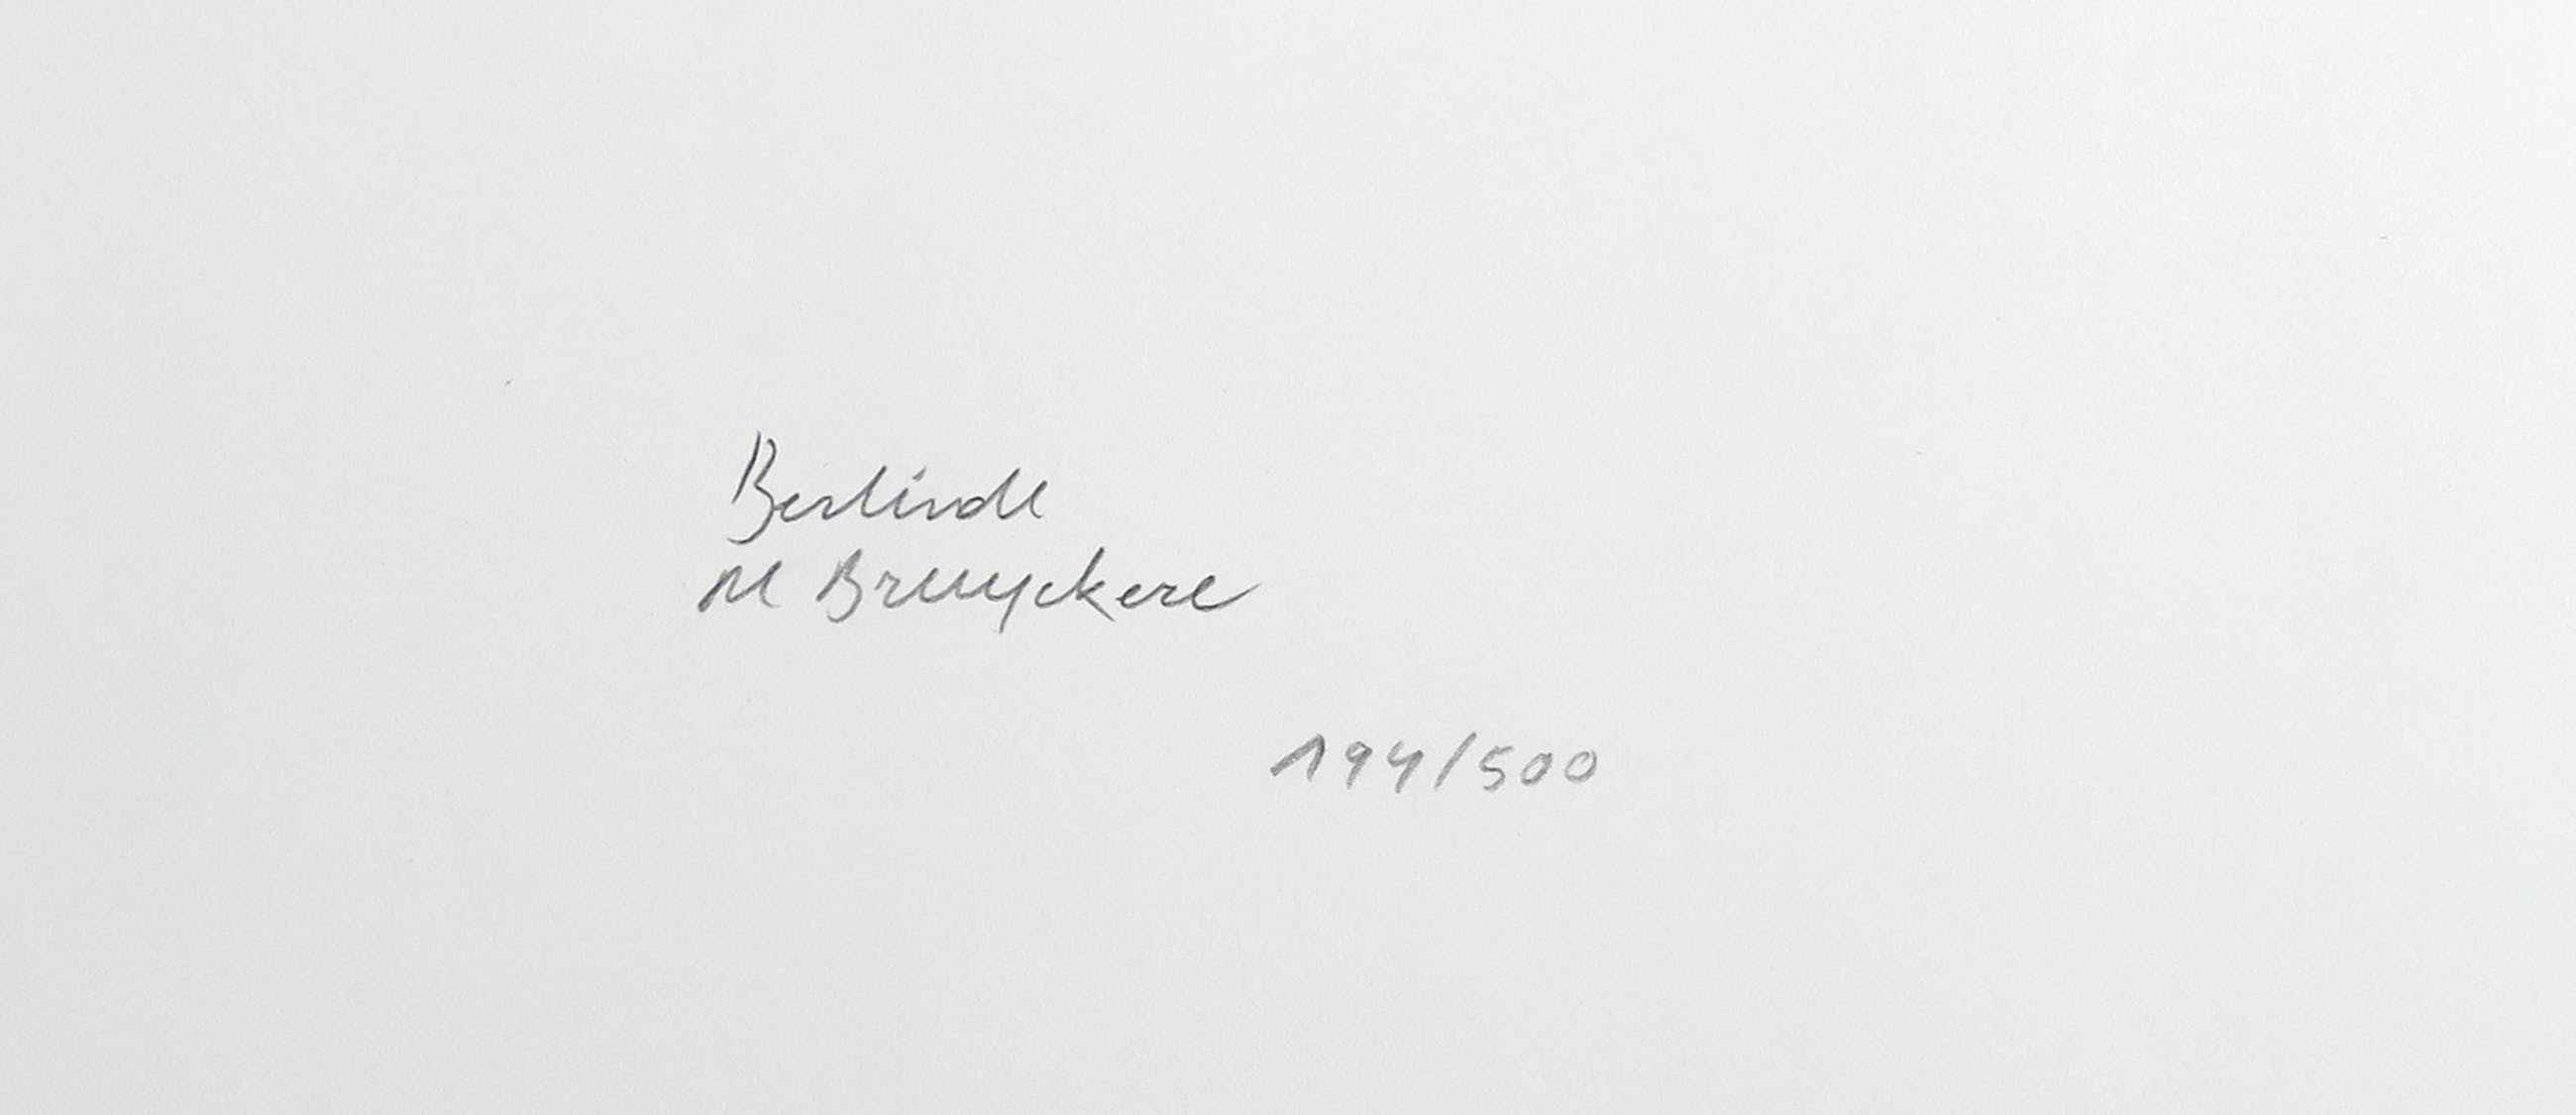 Berlinde
de Bruyckere
194/500